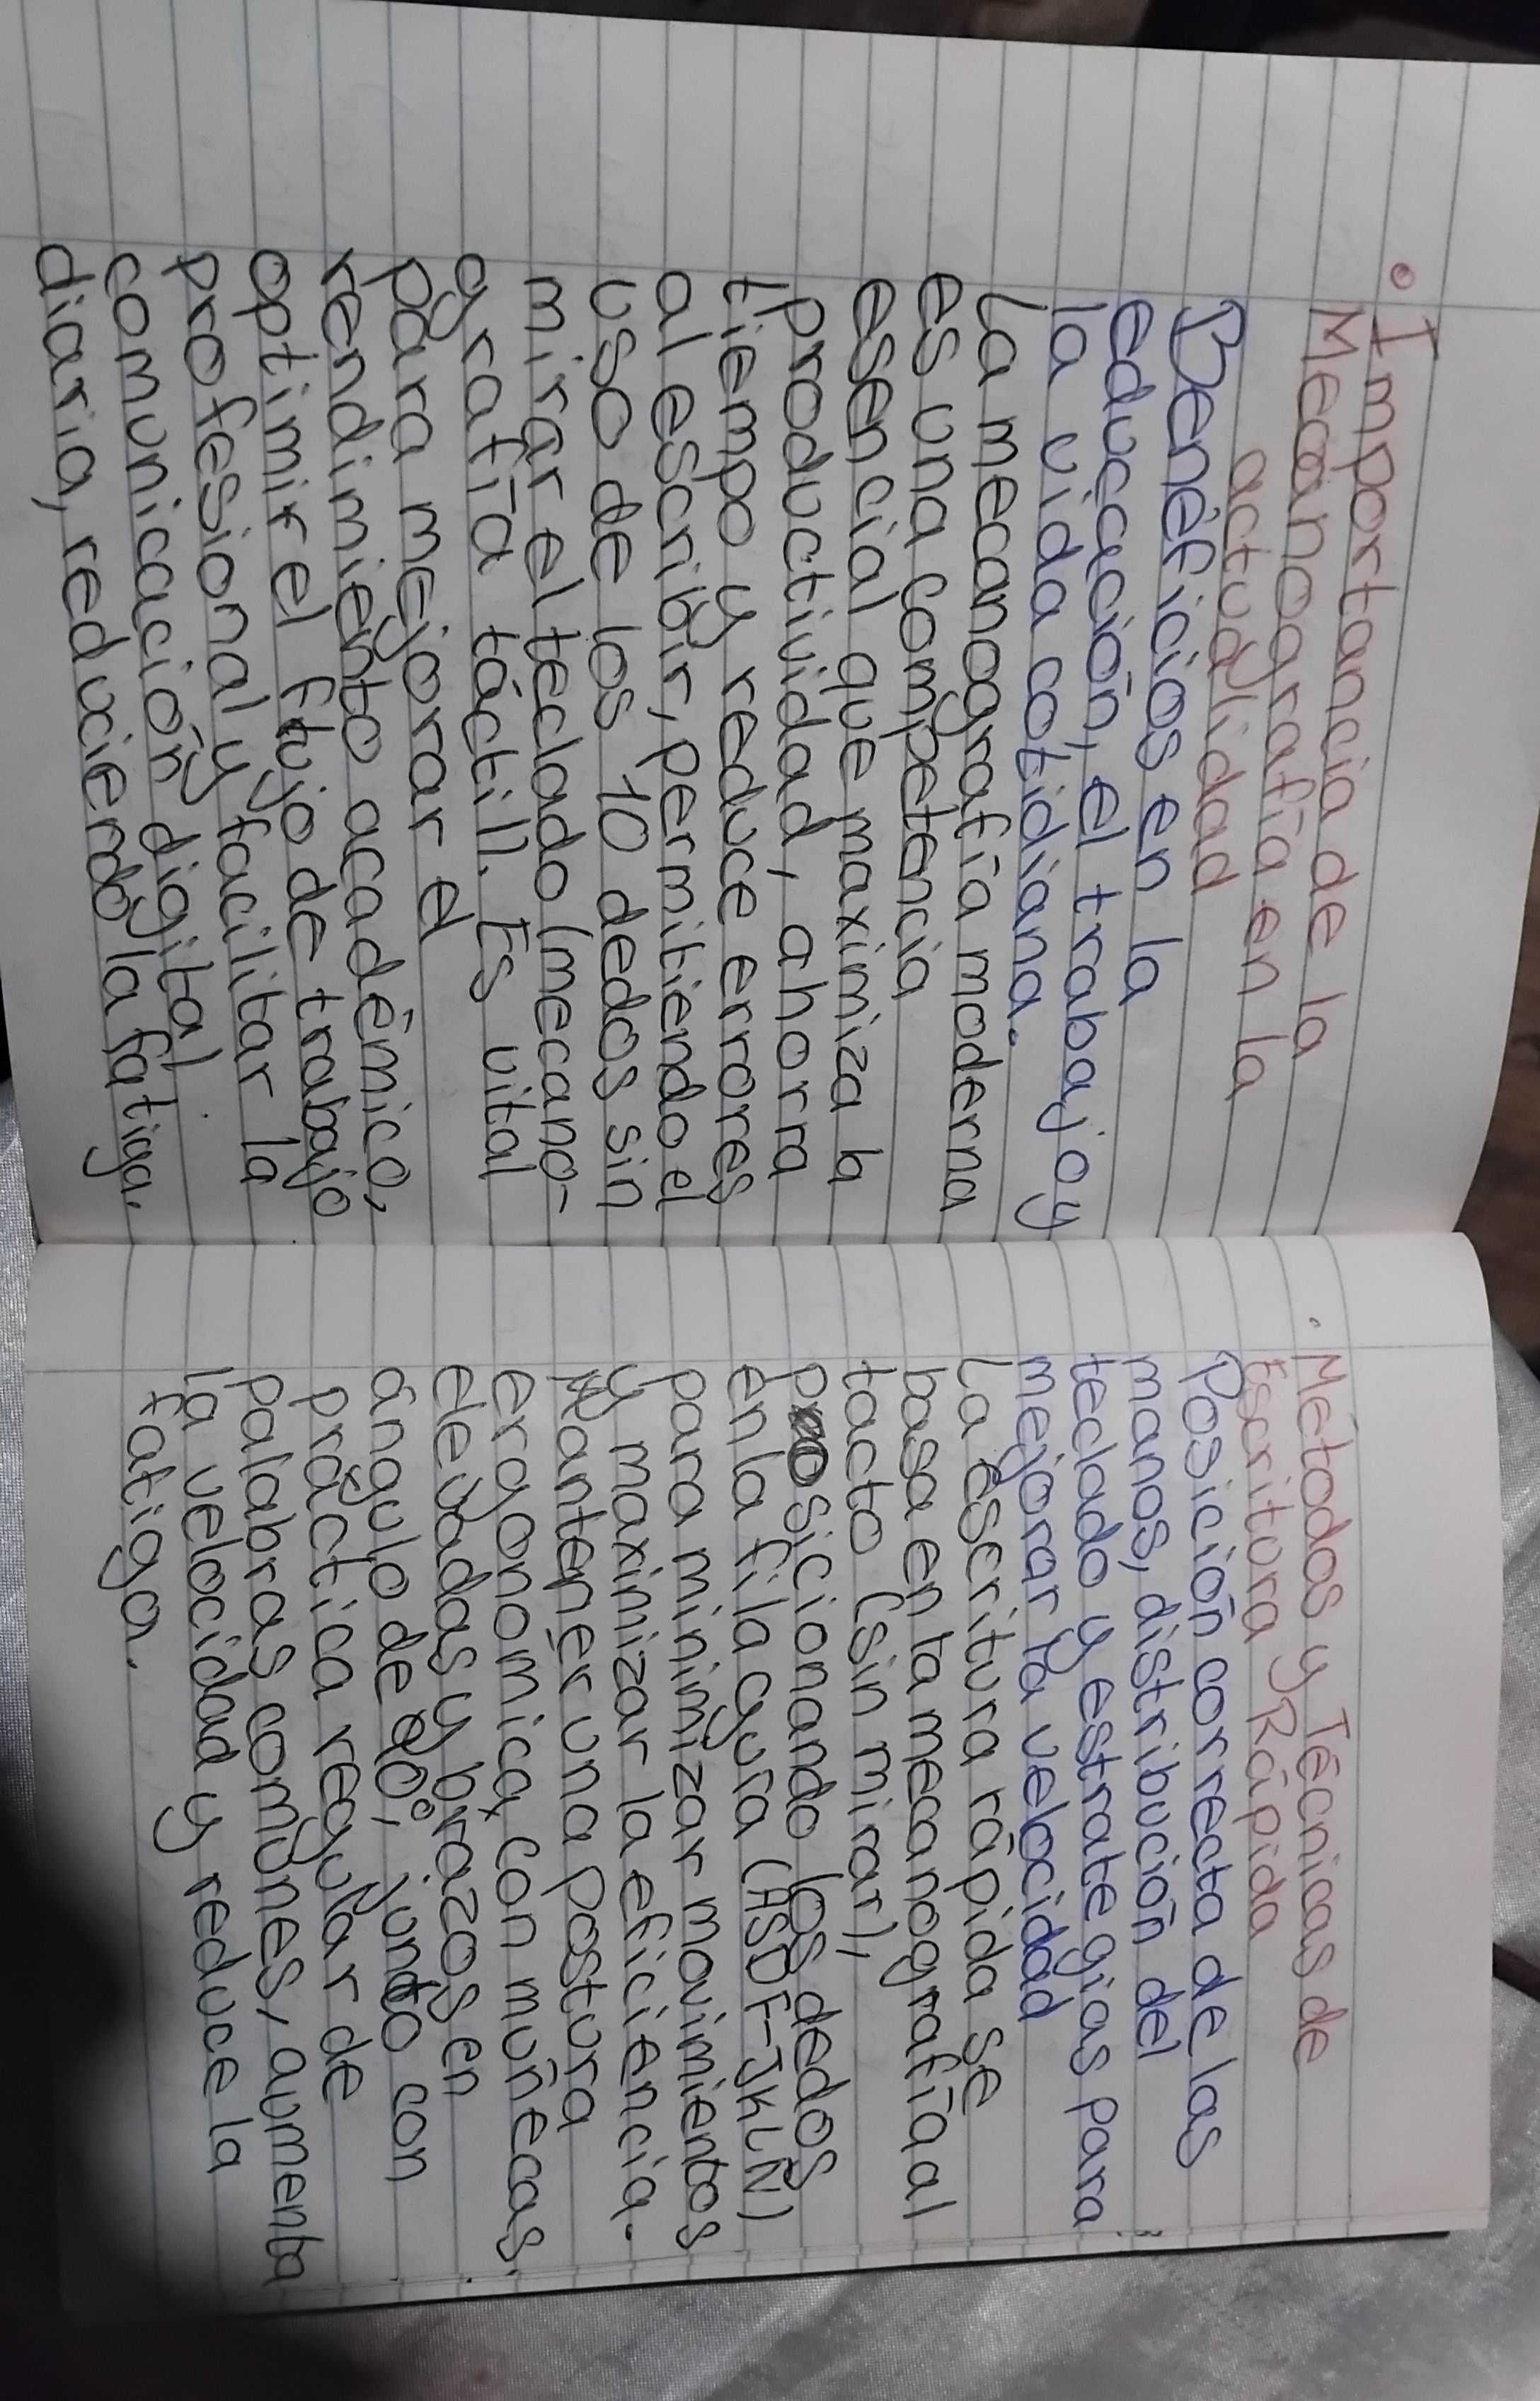 • Importancia de la
Mecanografía en la
actualidad
Benéficios en la
educación, el trabajo y
la vida cotidiana.
La mecanografía moderna
es una competencia
esencial que maximiza la
productividad, ahorra
tiempo y reduce errores
al escribir, permitiendo el
uso de los 10 dedos sin
mirar el teclado (mecano-
grafía táctil). Es vital
para mejorar el
rendimiento académico,
optimir el flujo de trabajo
profesional y facilitar la
comunicación digital
diaria, reduciendo la fatiga.
• Métodos y Técnicas de
Escritura y Rápida
Posición correcta de las
manos, distribución del
teclado y estrategias para
mejorar la velocidad
La escritura rápida se
basa en la mecanografía al
tacto (sin mirar),
posicionando los dedos
en la fila guía (ASDF-JKLÑ)
para minimizar movimientos
y maximizar la eficiencia.
Mantener una postura
ergonomica, con muñecas
elevadas y brazos en
ángulo de 90°, junto con
práctica regular de
palabras comunes, aumenta
la velocidad y reduce la
fatiga.